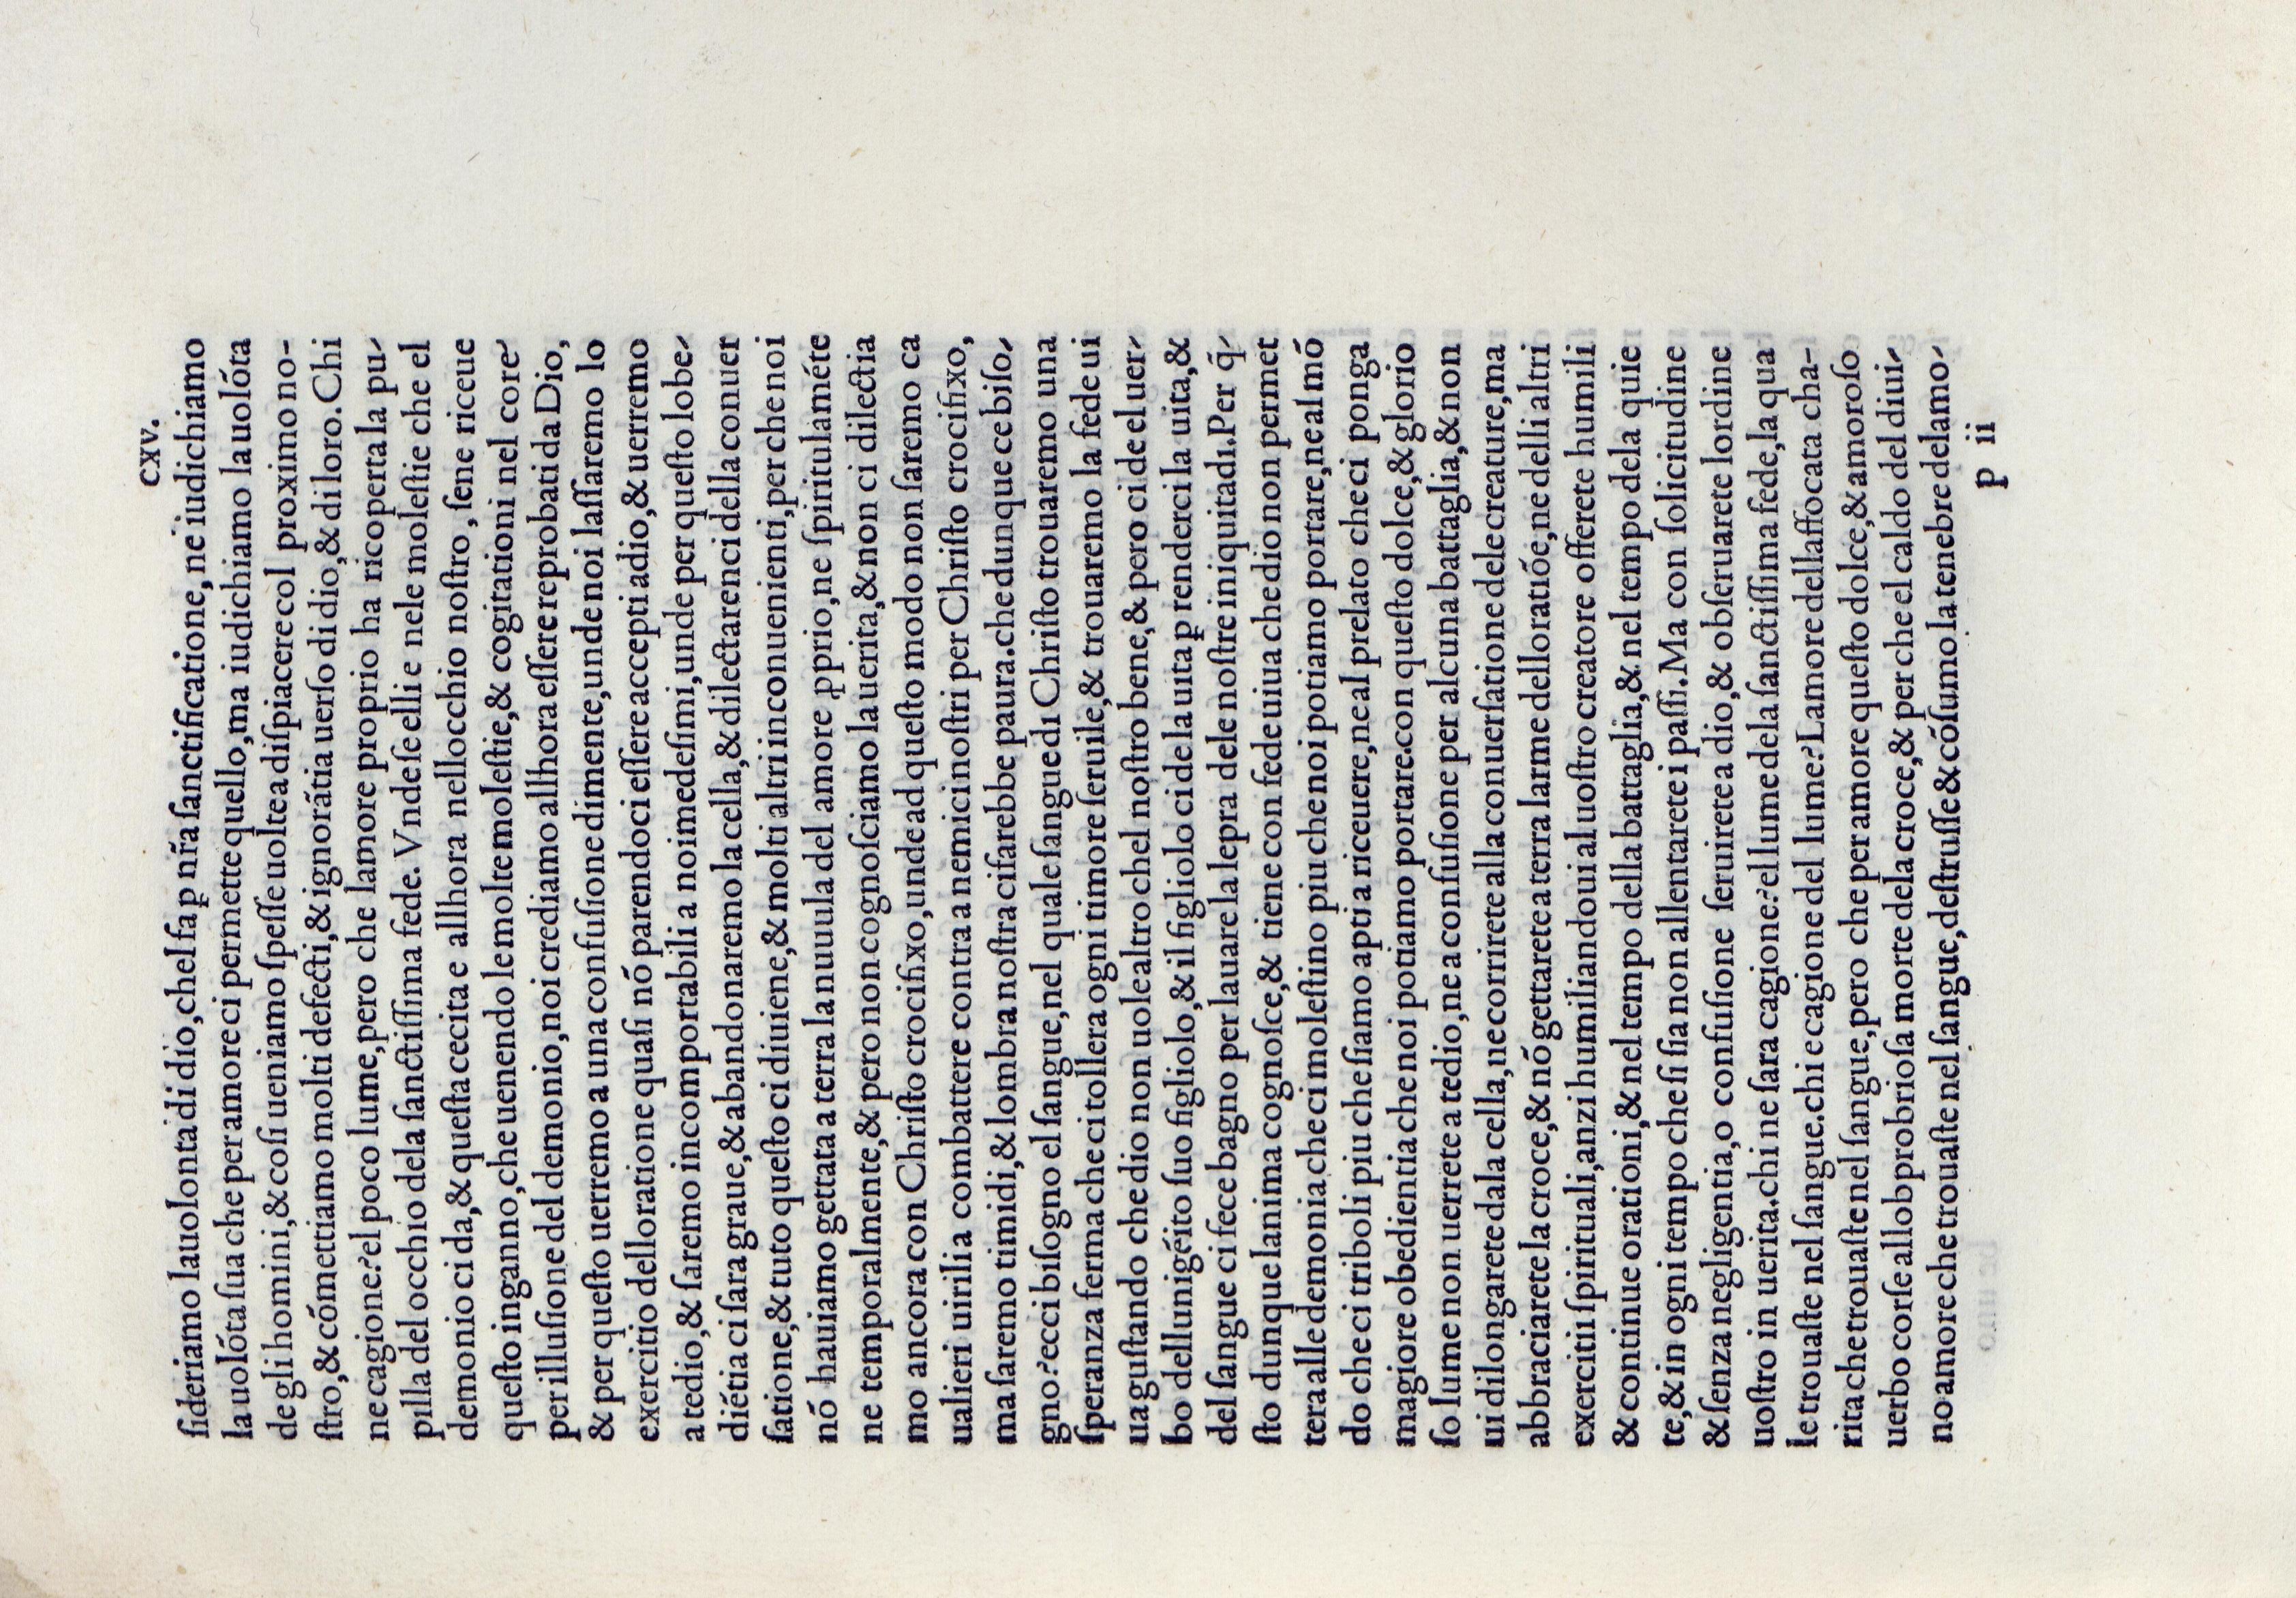 CXV.
ſideriamo la uolonta di dio, chel fa ꝑ nr̃a ſanctificatione, ne iudichiamo
la uolóta ſua che per amore ci permette quello, ma iudichiamo la uolóta
de gli homini, & coſi ueniamo ſpeſſe uolte a diſpiacere col proximo no-
ſtro, & cómettiamo molti defecti, & ignorãtia uerſo di dio, & di loro. Chi
ne cagione? el poco lume, pero che lamore proprio ha ricoperta la pu-
pilla del occhio dela ſanctiſſima fede. Vnde ſe elli e nele moleſtie che el
demonio ci da, & queſta cecita e allhora nellocchio noſtro, ſene riceue
queſto inganno, che uenendo le molte moleſtie, & cogitationi nel core
per illuſione del demonio, noi crediamo allhora eſſere reprobati da Dio,
& per queſto uerremo a una confuſione di mente, unde noi laſſaremo lo
exercitio delloratione quaſi nó parendoci eſſere accepti a dio, & uerremo
a tedio, & ſaremo incomportabili a noi medeſimi, unde per queſto lobe-
diétia ci ſara graue, & abandonaremo la cella, & dilectarenci della conuer
ſatione, & tuto queſto ci diuiene, & molti altri inconuenienti, per che noi
nó hauiamo gettata a terra la nuuula del amore ꝓprio, ne ſpiritulaméte
ne temporalmente, & pero non cognoſciamo la uerita, & non ci dilectia
mo ancora con Chriſto crocifixo, unde ad queſto modo non ſaremo ca
ualieri uirilia combattere contra a nemici noſtri per Chriſto crocifixo,
ma ſaremo timidi, & lombra noſtra ci farebbe paura. che dunque ce biſo-
gno? ecci biſogno el ſangue, nel quale ſangue di Chriſto trouaremo una
ſperanza ferma che ci tollera ogni timore ſeruile, & trouaremo la fede ui
ua guſtando che dio non uole altro chel noſtro bene, & pero ci de el uer-
bo dellunigéito ſuo figliolo, & il figliolo ci de la uita ꝑ renderci la uita, &
del ſangue ci fece bagno per lauare la lepra dele noſtre iniquitadi. Per q̃-
ſto dunque lanima cognoſce, & tiene con fede uiua che dio non permet
tera alle demonia che ci moleſtino piu che noi potiamo portare, ne al mó
do che ci triboli piu che ſiamo apti a riceuere, ne al prelato che ci ponga
magiore obedientia che noi potiamo portare. con queſto dolce, & glorio
ſo lume non uerrete a tedio, ne a confuſione per alcuna battaglia, & non
ui dilongarete dala cella, ne corrirete alla conuerſatione dele creature, ma
abbraciarete la croce, & nó gettarete a terra larme delloratióe, ne delli altri
exercitii ſpirituali, anzi humiliandoui al uoſtro creatore offerete humili
& continue orationi, & nel tempo della battaglia, & nel tempo dela quie
te, & in ogni tempo che ſi ſia non allentarete i paſſi. Ma con ſolicitudine
& ſenza negligentia, o confuſione ſeruirete a dio, & obſeruarete lordine
uoſtro in uerita. chi ne ſara cagione? el lume dela ſanctiſſima fede, la qua
le trouaſte nel ſangue. chi e cagione del lume? Lamore dellaffocata cha-
rita che trouaſte nel ſangue, pero che per amore queſto dolce, & amoroſo
uerbo corſe allobprobrioſa morte dela croce, & per che el caldo del diui-
no amore che trouaſte nel ſangue, deſtruſſe & cóſumo la tenebre delamo-
P ii